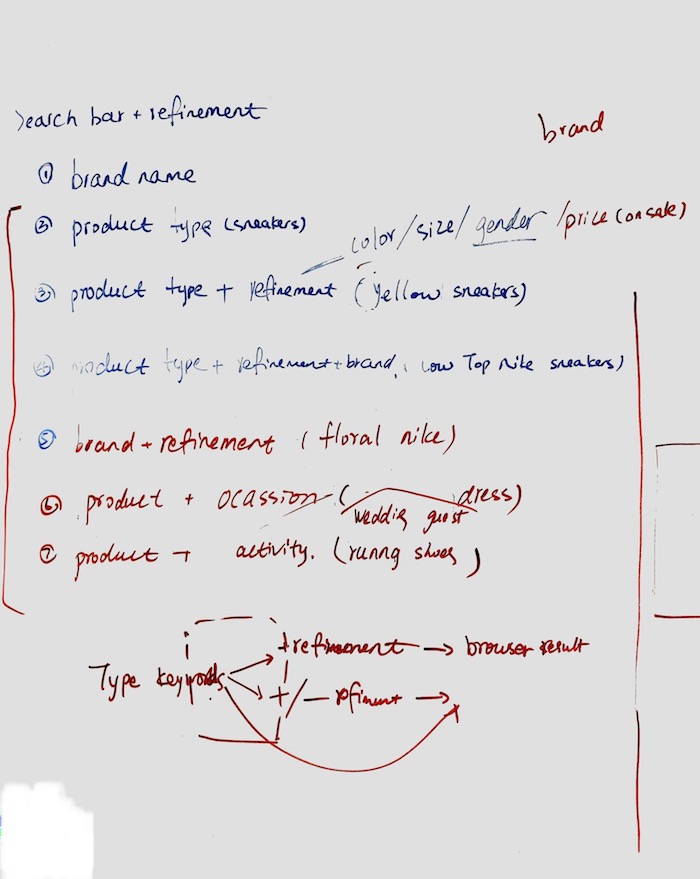 Search bar + refinement
brand
① brand name
② product type (sneakers)
color/size/gender /price (on sale)
③ product type + refinement (yellow sneakers)
④ product type + refinement + brand, Low Top Nike sneakers)
⑤ brand + refinement (floral nike)
⑥ product + ocassion (dress)
weddig guest
⑦ product + activity. (runng shoes)
+refinement → browser result
Type keywords
+/– refinment →